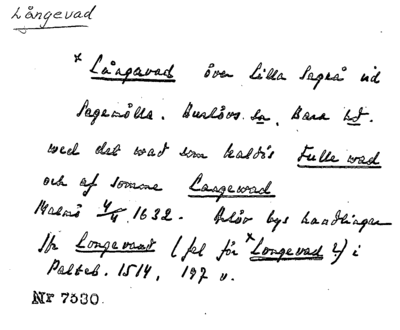 Långevad
x Långavad över Lilla Segeå vid
Segemölla. Burlövs sn, Bara hd.
wed det wad som kaldes Fulle wad
och af somme Langewad
Malmö 4/11 1632. Arlöv bys handlingar
Jfr Longevant (fel för x Longevad?) i
Palteb. 1514, 197 v.
Nr 7530.